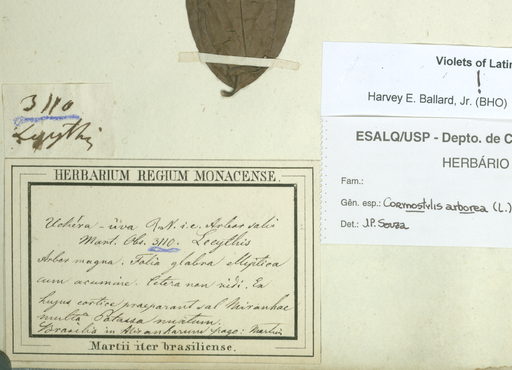 3110
Lecythis
HERBARIUM REGIUM MONACENSE.
Uchéra - üva R. N. i. e. Arbor salis
Mart. Obs. 3110. Lecythis
Arbor magna. Folia glabra elliptica
cum acumine. Cetera non vidi. Ex
hujus cortice praeparant sal Miranhae
multa Potassa mixtum.
Brasilia in Miranharum pago: Martius
Martii iter brasiliense.
Violets of Latin
!
Harvey E. Ballard, Jr. (BHO)
ESALQ/USP - Depto. de C
HERBÁRIO
Fam.:
Gên. esp.: Corynostylis arborea (L.)
Det.: J.P. Souza